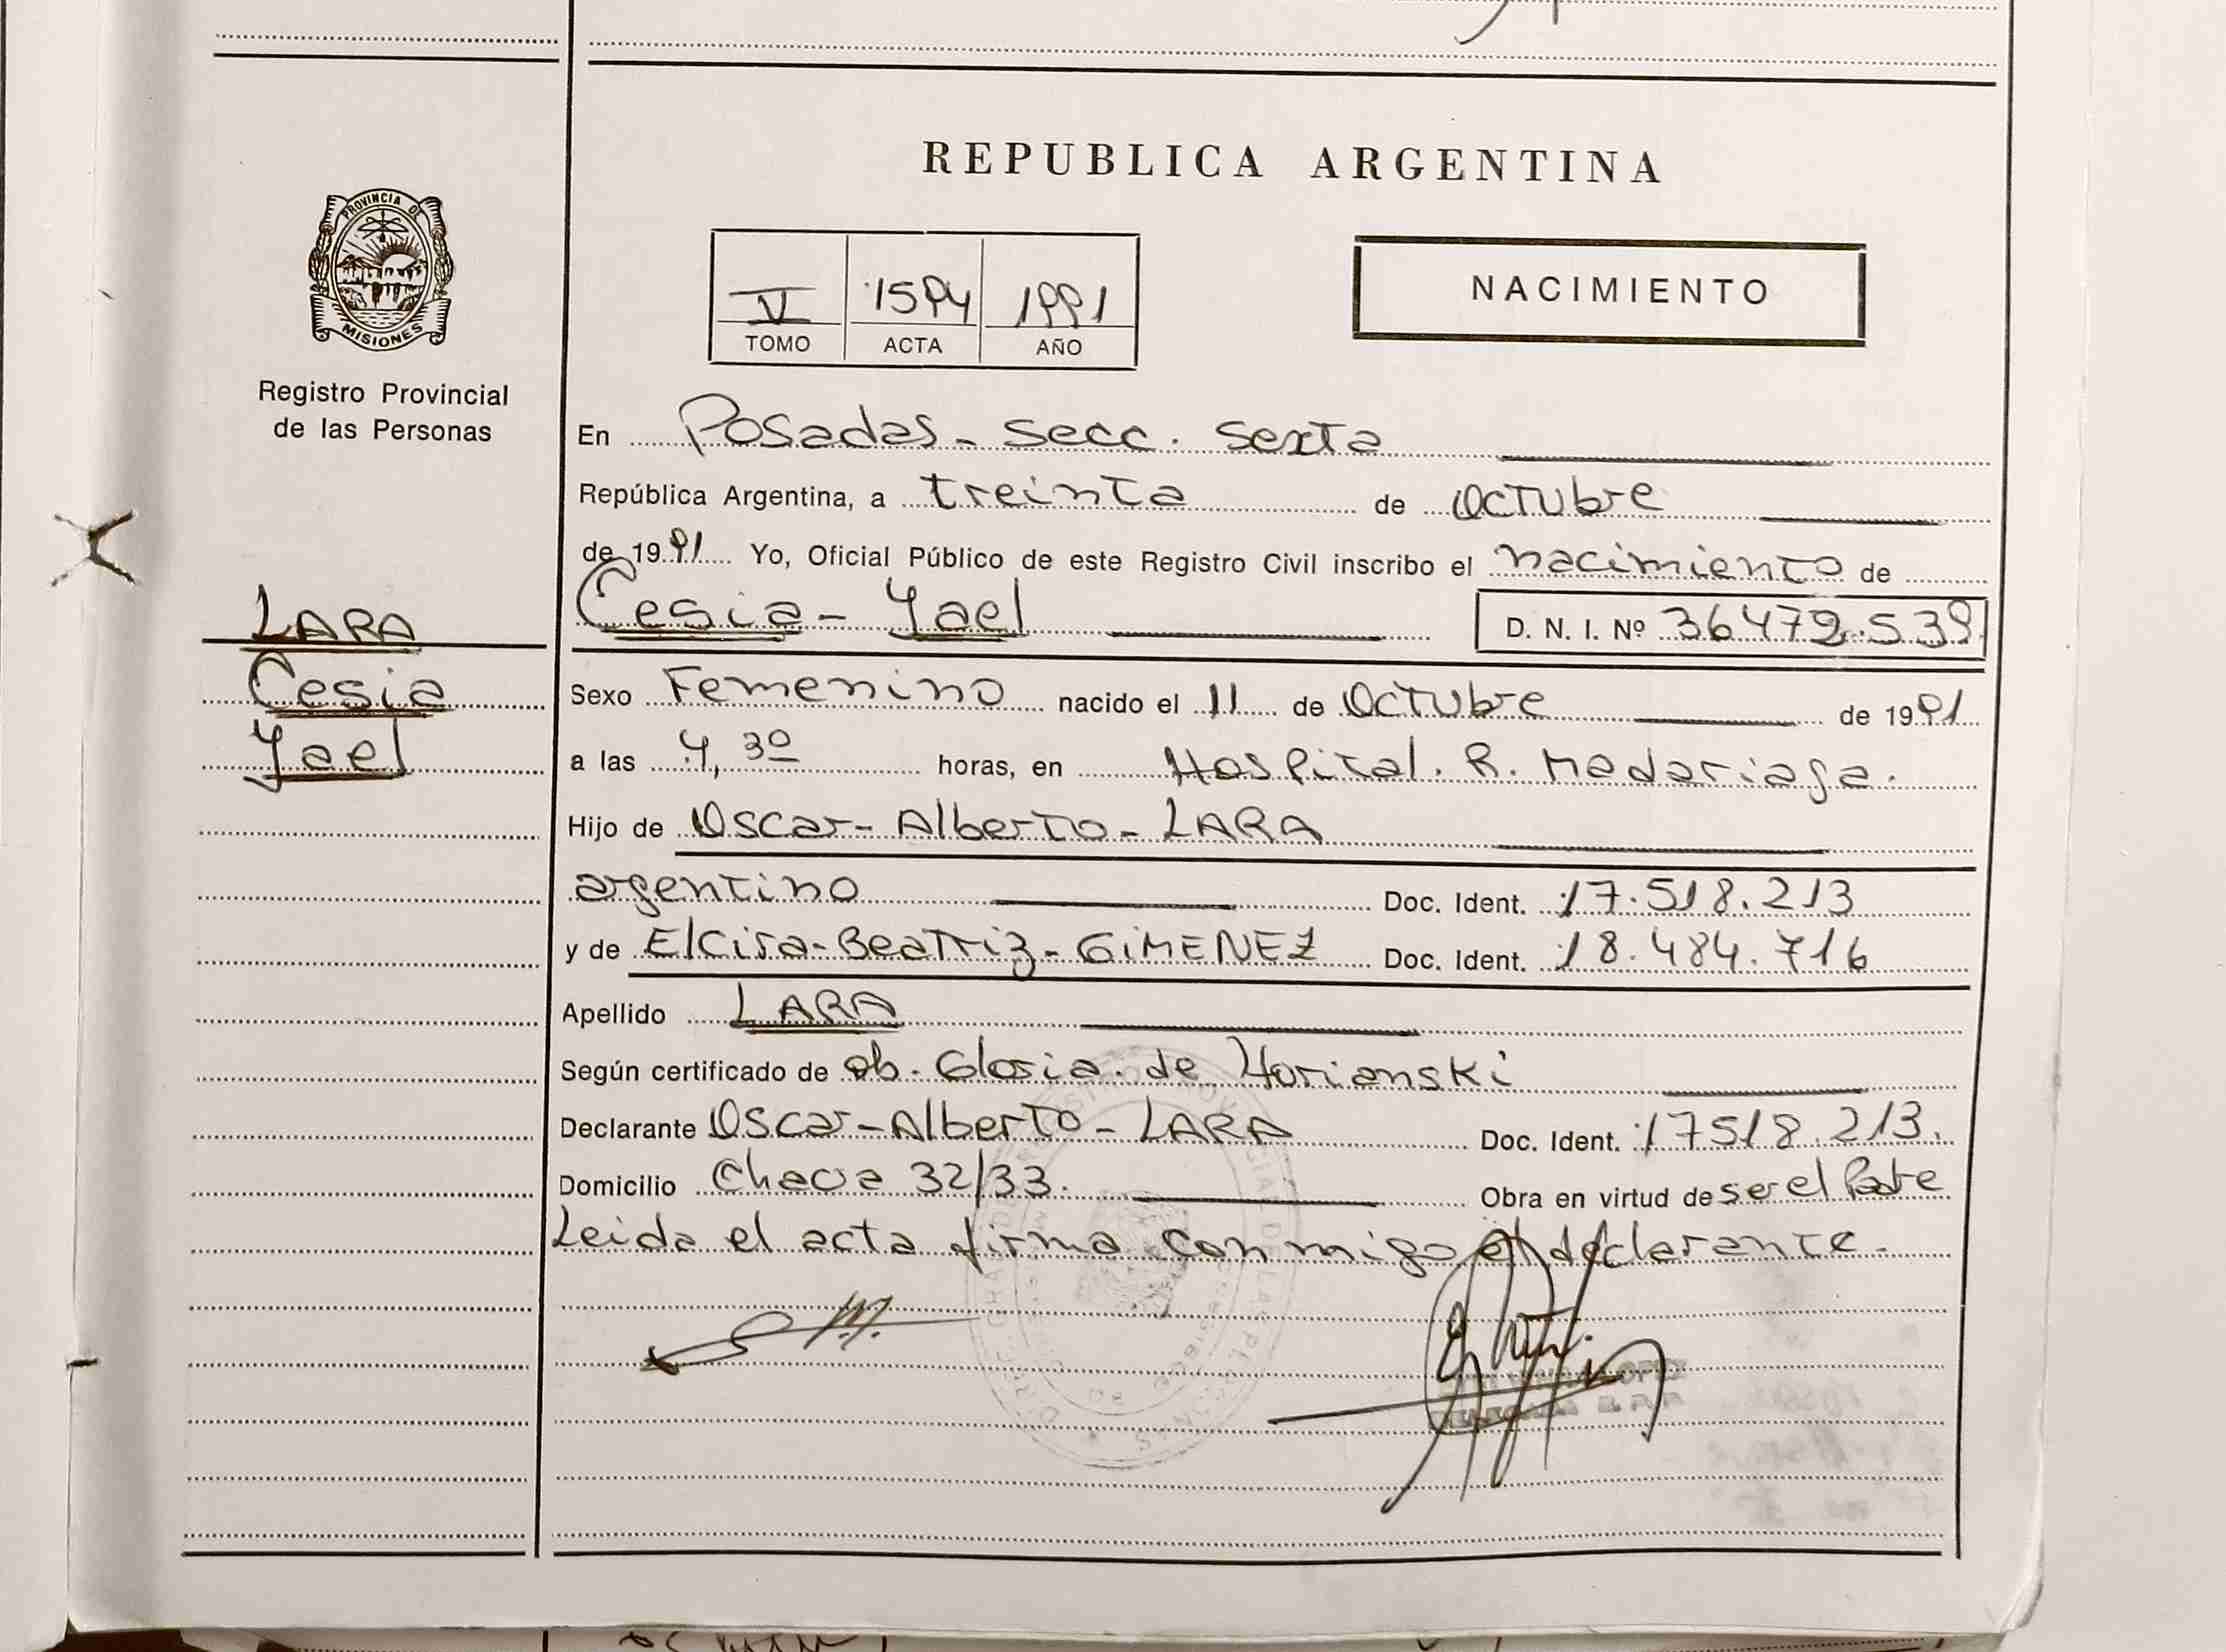 REPUBLICA ARGENTINA
PROVINCIA DE
MISIONES
Registro Provincial
de las Personas
V 1594 1991
TOMO ACTA AÑO
NACIMIENTO
En Posadas - Secc. Sexta
República Argentina, a treinta de Octubre
de 1991 Yo, Oficial Público de este Registro Civil inscribo el nacimiento de
LARA
Cesia
Yael
Cesia - Yael D. N. I. Nº 36472.539
Sexo Femenino nacido el 11 de Octubre de 1991
a las 4,30 horas, en Hospital. R. Madariaga.
Hijo de Oscar - Alberto - LARA
argentino Doc. Ident. 17.518.213
y de Elcira - Beatriz - GiMENEZ Doc. Ident. 18.484.716
Apellido LARA
Según certificado de ob. Gloria de Horianski
Declarante Oscar - Alberto - LARA Doc. Ident. 17518.213.
Domicilio Chaca 32/33. Obra en virtud de ser el Padre
Leida el acta firma conmigo el declarante.